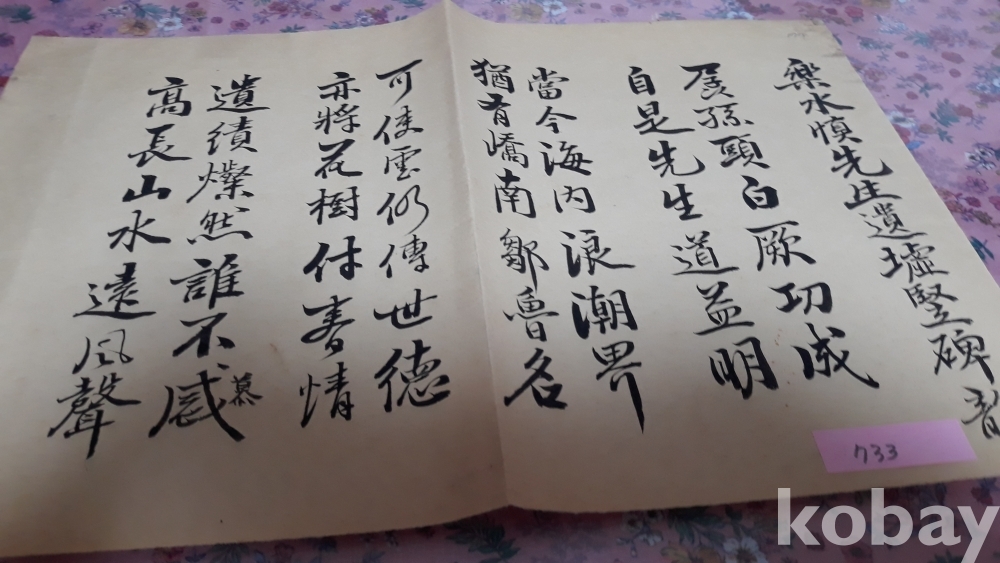 樂水愼先生遺墟竪碑韵
孱孫頭白厥功成
自是先生道益明
當今海內浪潮界
猶有嶠南鄒魯名
可使雲仍傳世德
亦將花樹付春情
遺績燦然誰不感
慕
高長山水遠風聲
733
kobay